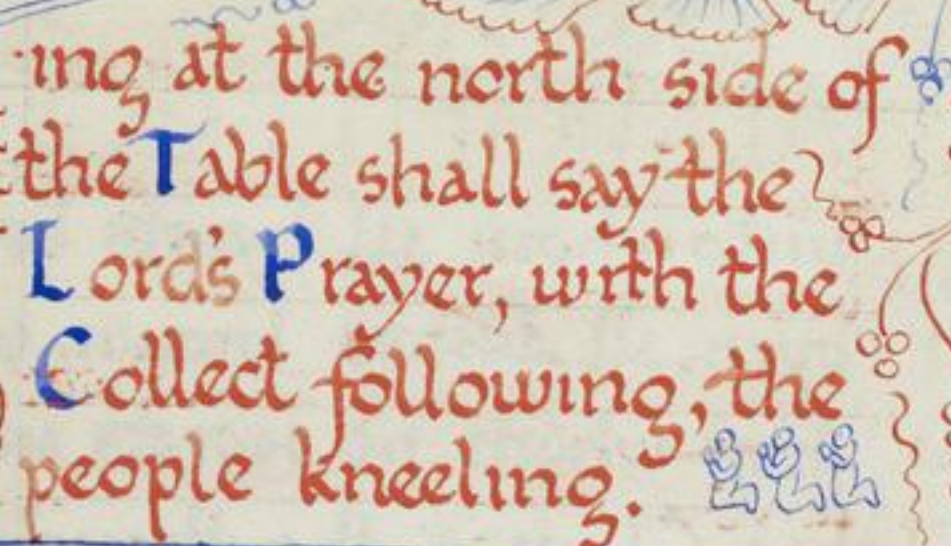 ing at the north side of
the Table shall say the
Lord's Prayer, with the
Collect following, the
people kneeling.